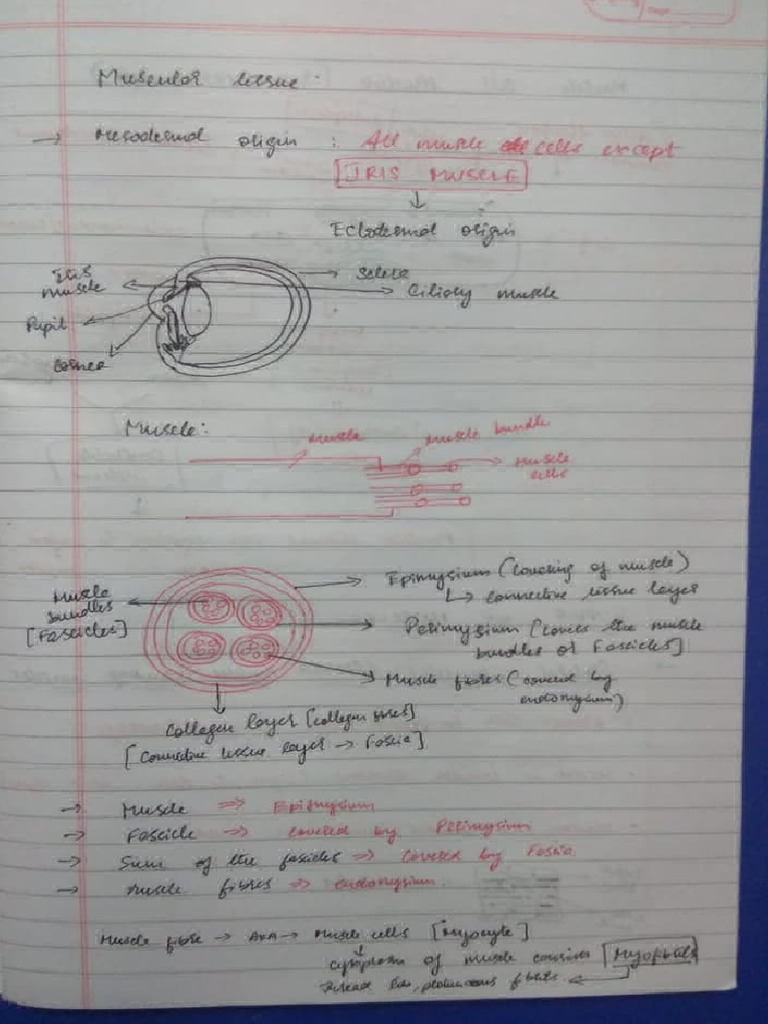 Muscular tissue:
→ Mesodermal origin : All muscle cells except
IRIS MUSCLE
↓
Ectodermal origin
Iris muscle
→ Sclera
→ Ciliary muscle
Pupil
Cornea
Muscle:
muscle
muscle bundle
muscle cells
Muscle bundles [Fascicles]
Epimysium (covering of muscle)
↳ connective tissue layer
Perimysium [covers the muscle
bundles or Fascicles]
Muscle fibres (covered by
endomysium)
Collagen layer [collagen fibres]
[Connective tissue layer → Fascia]
→ Muscle ⇒ Epimysium
→ Fascicle → covered by Perimysium
→ Sum of the fascicles ⇒ covered by Fascia
→ Muscle fibres ⇒ endomysium.
Muscle fibre → AKA → Muscle cells [Myocyte]
↓
cytoplasm of muscle contains [Myofibrils]
fibrils ←